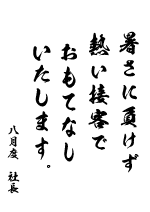 暑さに負けず
熱い接客で
おもてなし
いたします。
八月度 社長